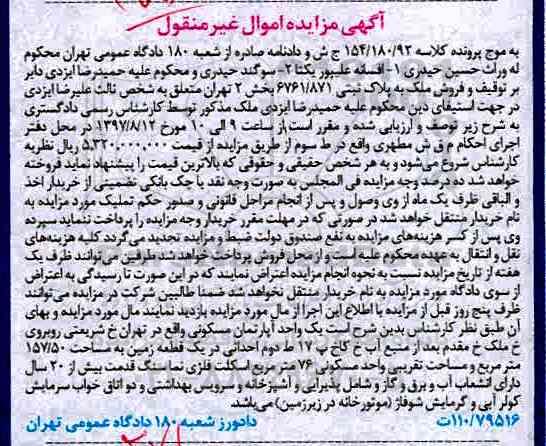 آگهی مزایده اموال غیر منقول
به موج پرونده کلاسه ۱۵۴/۱۸۰/۹۲ ج ش و دادنامه صادره از شعبه ۱۸۰ دادگاه عمومی تهران محکوم
له وراث حسین حیدری ۱- افسانه علیپور یکتا ۲- سوگند حیدری و محکوم علیه حمیدرضا ایزدی دایر
بر توقیف و فروش ملک به پلاک ثبتی ۶۷۶۱/۸۷۱ بخش ۲ تهران متعلق به شخص ثالث علیرضا ایزدی
در جهت استیفای دین محکوم علیه حمیدرضا ایزدی ملک مذکور توسط کارشناس رسمی دادگستری
به شرح زیر توصیف و ارزیابی شده و مقرر است از ساعت ۹ الی ۱۰ مورخ ۱۳۹۷/۸/۱۲ در محل دفتر
اجرای احکام م ق ش مطهری واقع در ط سوم از طریق مزایده از قیمت ۵,۳۲۰,۰۰۰,۰۰۰ ریال نظریه
کارشناس شروع می‌شود و به هر شخص حقیقی و حقوقی که بالاترین قیمت را پیشنهاد نماید فروخته
خواهد شد ده درصد وجه مزایده فی المجلس به صورت وجه نقد یا چک بانکی تضمینی از خریدار اخذ
و الباقی ظرف یک ماه از وی وصول و پس از انجام مراحل قانونی و صدور حکم تملیک مورد مزایده به
نام خریدار منتقل خواهد شد در صورتی که در مهلت مقرر خریدار وجه مزایده را پرداخت ننماید سپرده
وی پس از کسر هزینه‌های مزایده به نفع صندوق دولت ضبط و مزایده تجدید می‌گردد کلیه هزینه‌های
نقل و انتقال به عهده محکوم علیه است و از محل فروش پرداخت خواهد شد طرفین می‌توانند ظرف یک
هفته از تاریخ مزایده نسبت به نحوه انجام مزایده اعتراض نمایند که در این صورت تا رسیدگی به اعتراض
از سوی دادگاه مورد مزایده به نام خریدار منتقل نخواهد شد ضمنا طالبین شرکت در مزایده می‌توانند
ظرف پنج روز قبل از مزایده با اطلاع این اجرا از مال مورد مزایده بازدید نمایند مال مورد مزایده و بهای
آن طبق نظر کارشناس بدین شرح است یک واحد آپارتمان مسکونی واقع در تهران خ شریعتی روبروی
خ ملک خ مقدم بعد از منبع آب خ کاج پ ۱۷ ط دوم احداثی در یک قطعه زمین به مساحت ۱۵۷/۵۰
متر مربع و مساحت تقریبی واحد مسکونی ۷۶ متر مربع اسکلت فلزی نما سنگ قدمت بیش از ۲۰ سال
دارای انشعاب آب و برق و گاز و شامل پذیرایی و آشپزخانه و سرویس بهداشتی و دو اتاق خواب سرمایش
کولر آبی و گرمایش شوفاژ (موتورخانه در زیرزمین) می‌باشد.
۱۱۰/۷۹۵۱۶ت دادورز شعبه ۱۸۰ دادگاه عمومی تهران